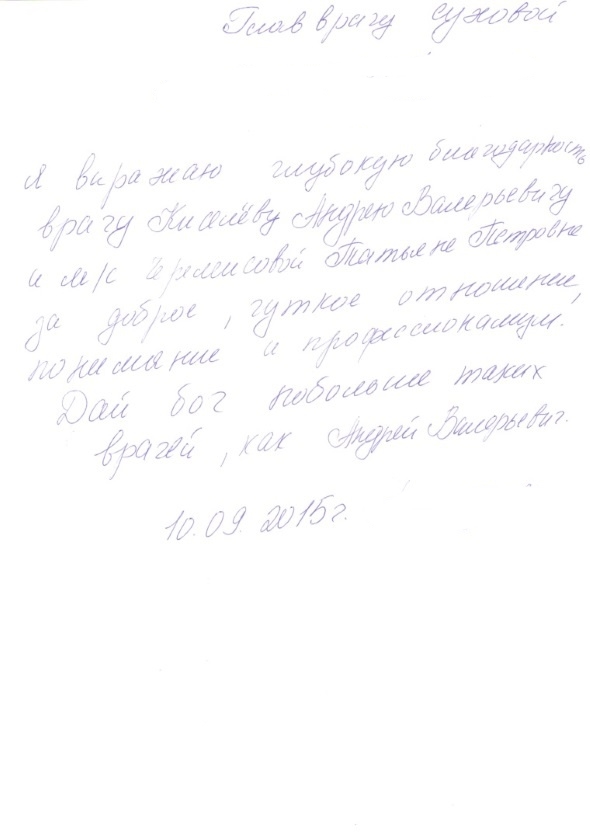 Глав врачу Суховой
Я выражаю глубокую благодарность
врачу Киселёву Андрею Валерьевичу
и м/с Черемисовой Татьяне Петровне
за доброе, чуткое отношение,
понимание и профессионализм.
Дай бог побольше таких
врачей, как Андрей Валерьевич.
10.09.2015г.